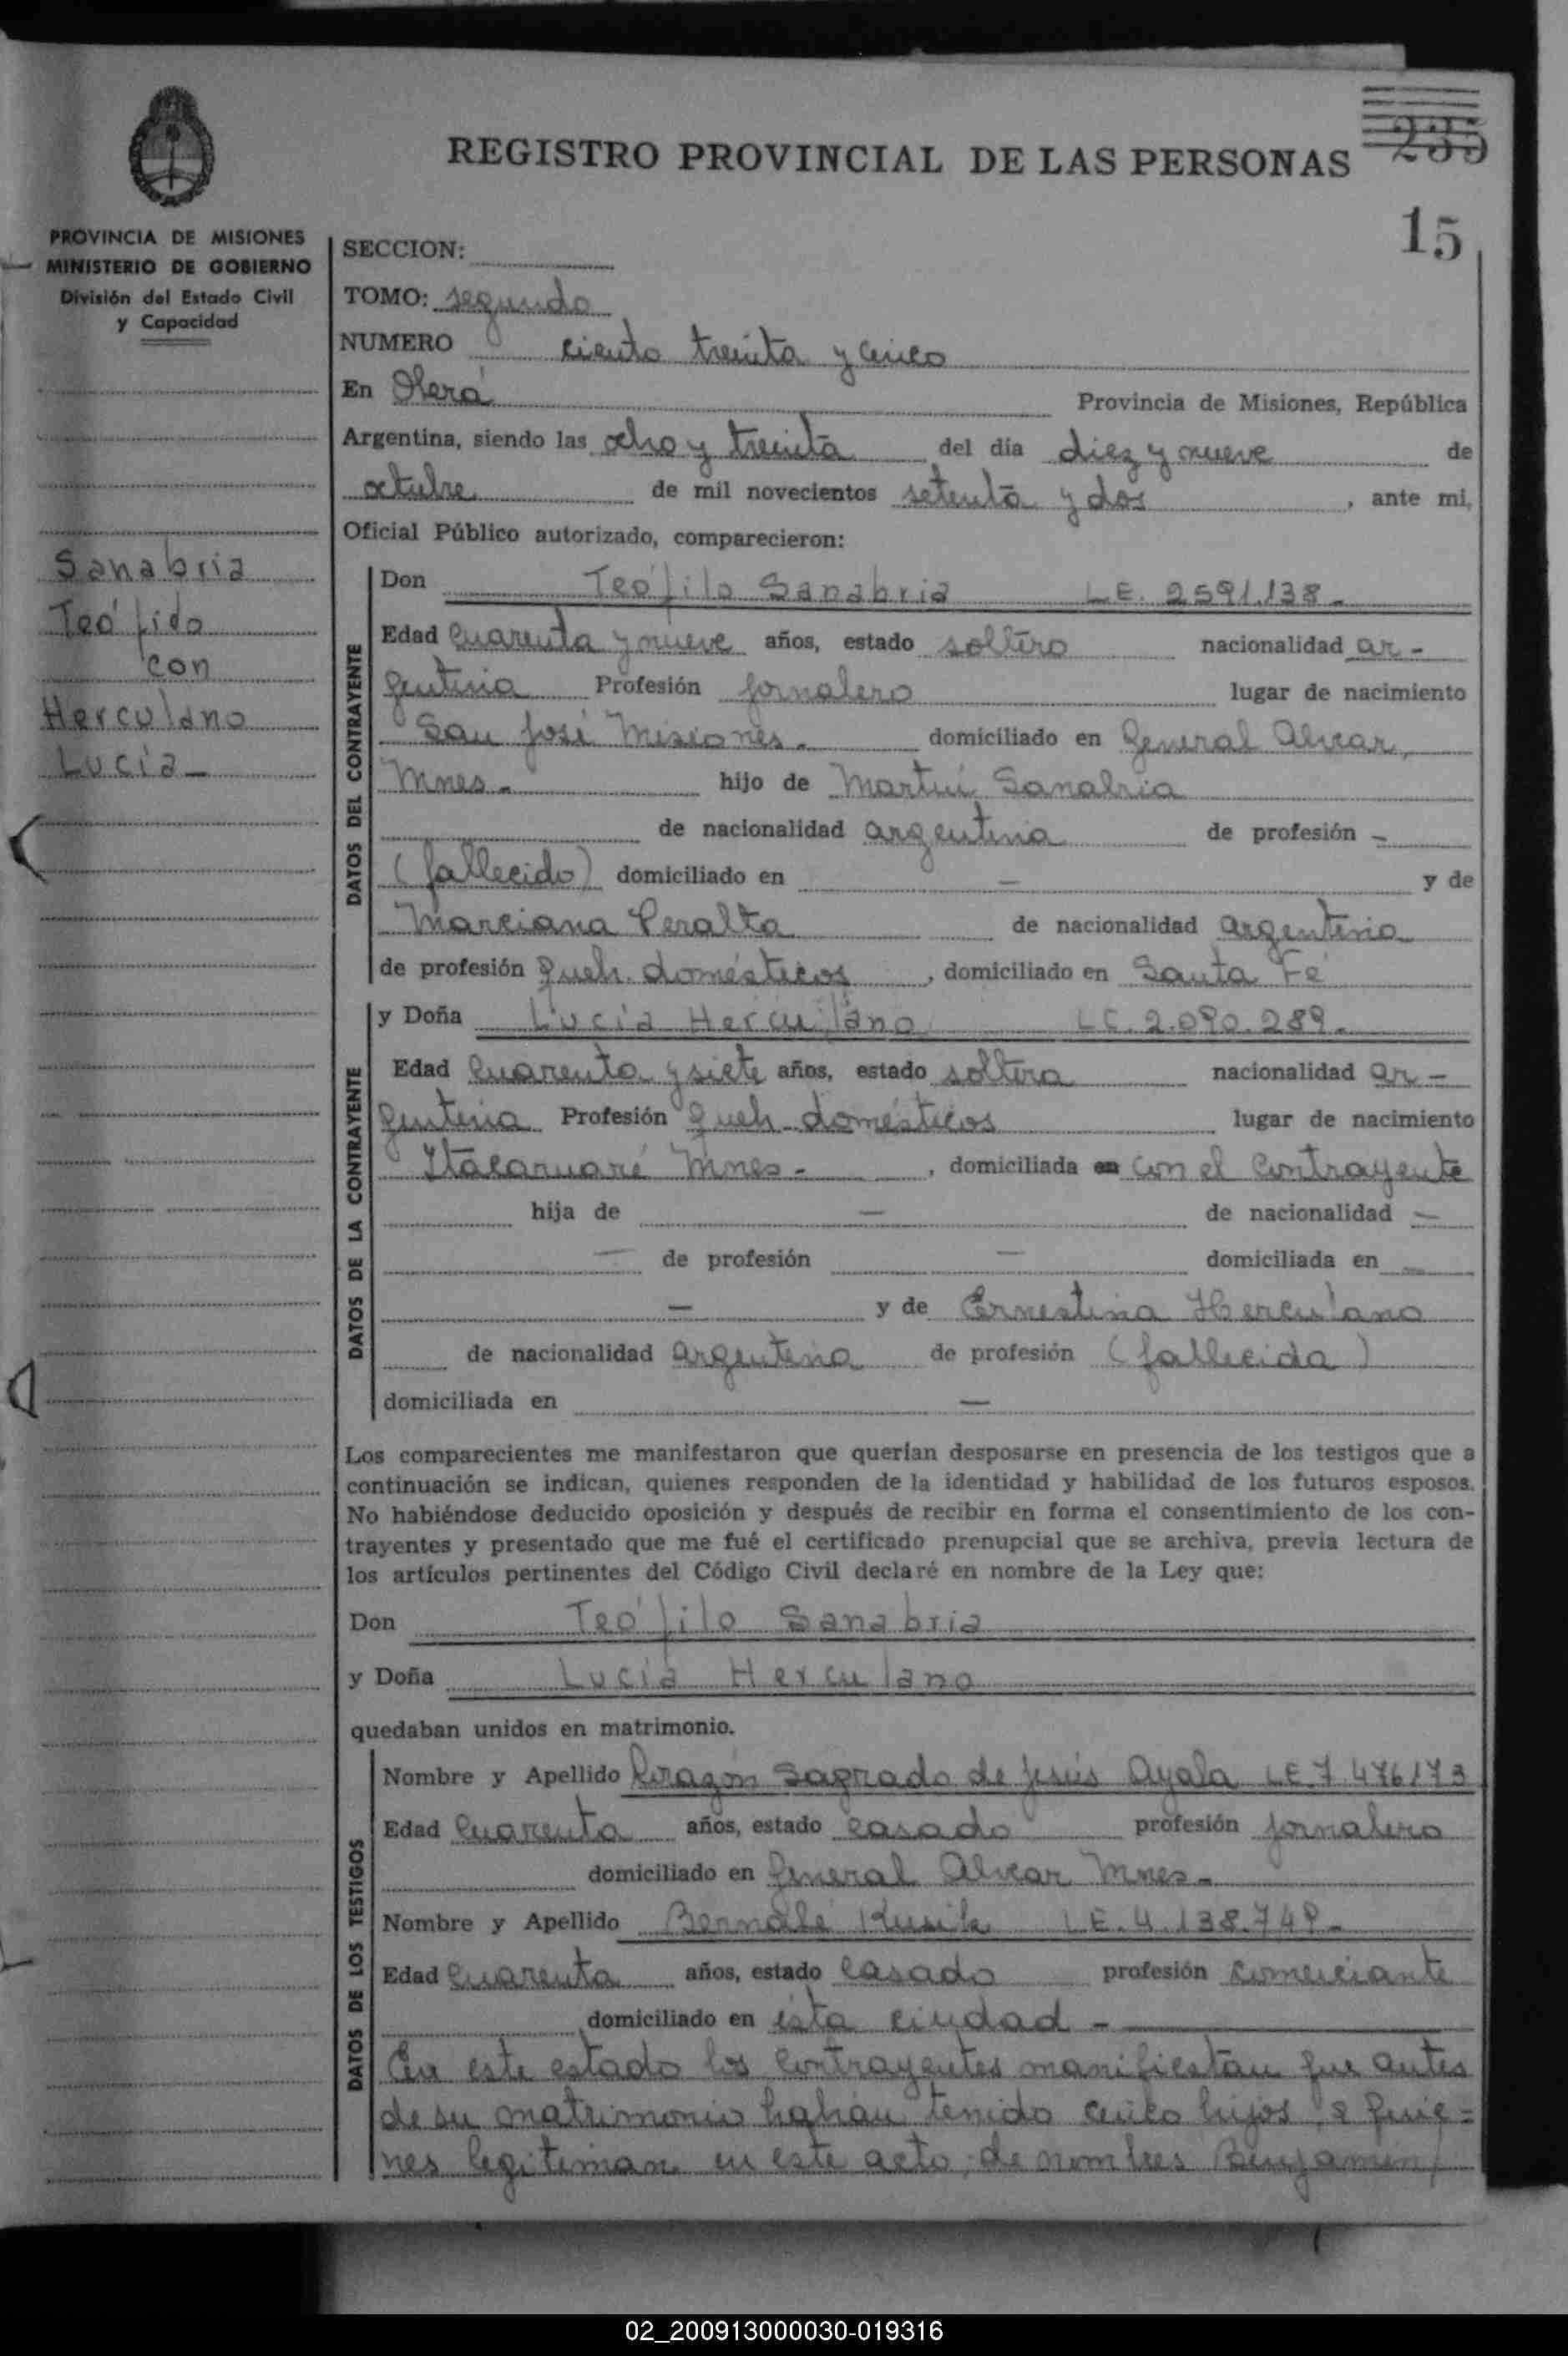 REGISTRO PROVINCIAL DE LAS PERSONAS
235
15
PROVINCIA DE MISIONES
MINISTERIO DE GOBIERNO
División del Estado Civil
y Capacidad
Sanabria
Teófido
con
Herculano
Lucía -
SECCION:
TOMO: segundo
NUMERO ciento treinta y cinco
En Oberá Provincia de Misiones, República
Argentina, siendo las ocho y treinta del día diez y nueve de
octubre de mil novecientos setenta y dos, ante mi,
Oficial Público autorizado, comparecieron:
DATOS DEL CONTRAYENTE
Don Teófilo Sanabria LE. 2591.138 -
Edad cuarenta y nueve años, estado soltero nacionalidad ar-
gentina Profesión jornalero lugar de nacimiento
San José Misiones - domiciliado en General Alvear,
Mnes - hijo de Martín Sanabria
de nacionalidad argentina de profesión -
(fallecido) domiciliado en - y de
Marciana Peralta de nacionalidad argentina
de profesión queh. domésticos, domiciliado en Santa Fé
DATOS DE LA CONTRAYENTE
y Doña Lucía Herculano LC. 2.090.289.
Edad cuarenta y siete años, estado soltera nacionalidad ar-
gentina Profesión queh. domésticos lugar de nacimiento
Itacaruaré Mnes -, domiciliada en con el contrayente
hija de - de nacionalidad -
- de profesión - domiciliada en -
- y de Ernestina Herculano
de nacionalidad argentina de profesión (fallecida)
domiciliada en -
Los comparecientes me manifestaron que querían desposarse en presencia de los testigos que a
continuación se indican, quienes responden de la identidad y habilidad de los futuros esposos.
No habiéndose deducido oposición y después de recibir en forma el consentimiento de los con-
trayentes y presentado que me fué el certificado prenupcial que se archiva, previa lectura de
los artículos pertinentes del Código Civil declaré en nombre de la Ley que:
Don Teófilo Sanabria
y Doña Lucía Herculano
quedaban unidos en matrimonio.
DATOS DE LOS TESTIGOS
Nombre y Apellido Sagrado de Jesús Ayala LE. 7.476173
Edad cuarenta años, estado casado profesión jornalero
domiciliado en General Alvear Mnes -
Nombre y Apellido LE. 4.138.749 -
Edad cuarenta años, estado casado profesión comerciante
domiciliado en ésta ciudad -
En este estado los contrayentes manifiestan que antes
de su matrimonio habían tenido cinco hijos, a quie-
nes legitiman en este acto, de nombres Benjamín,
02_200913000030-019316